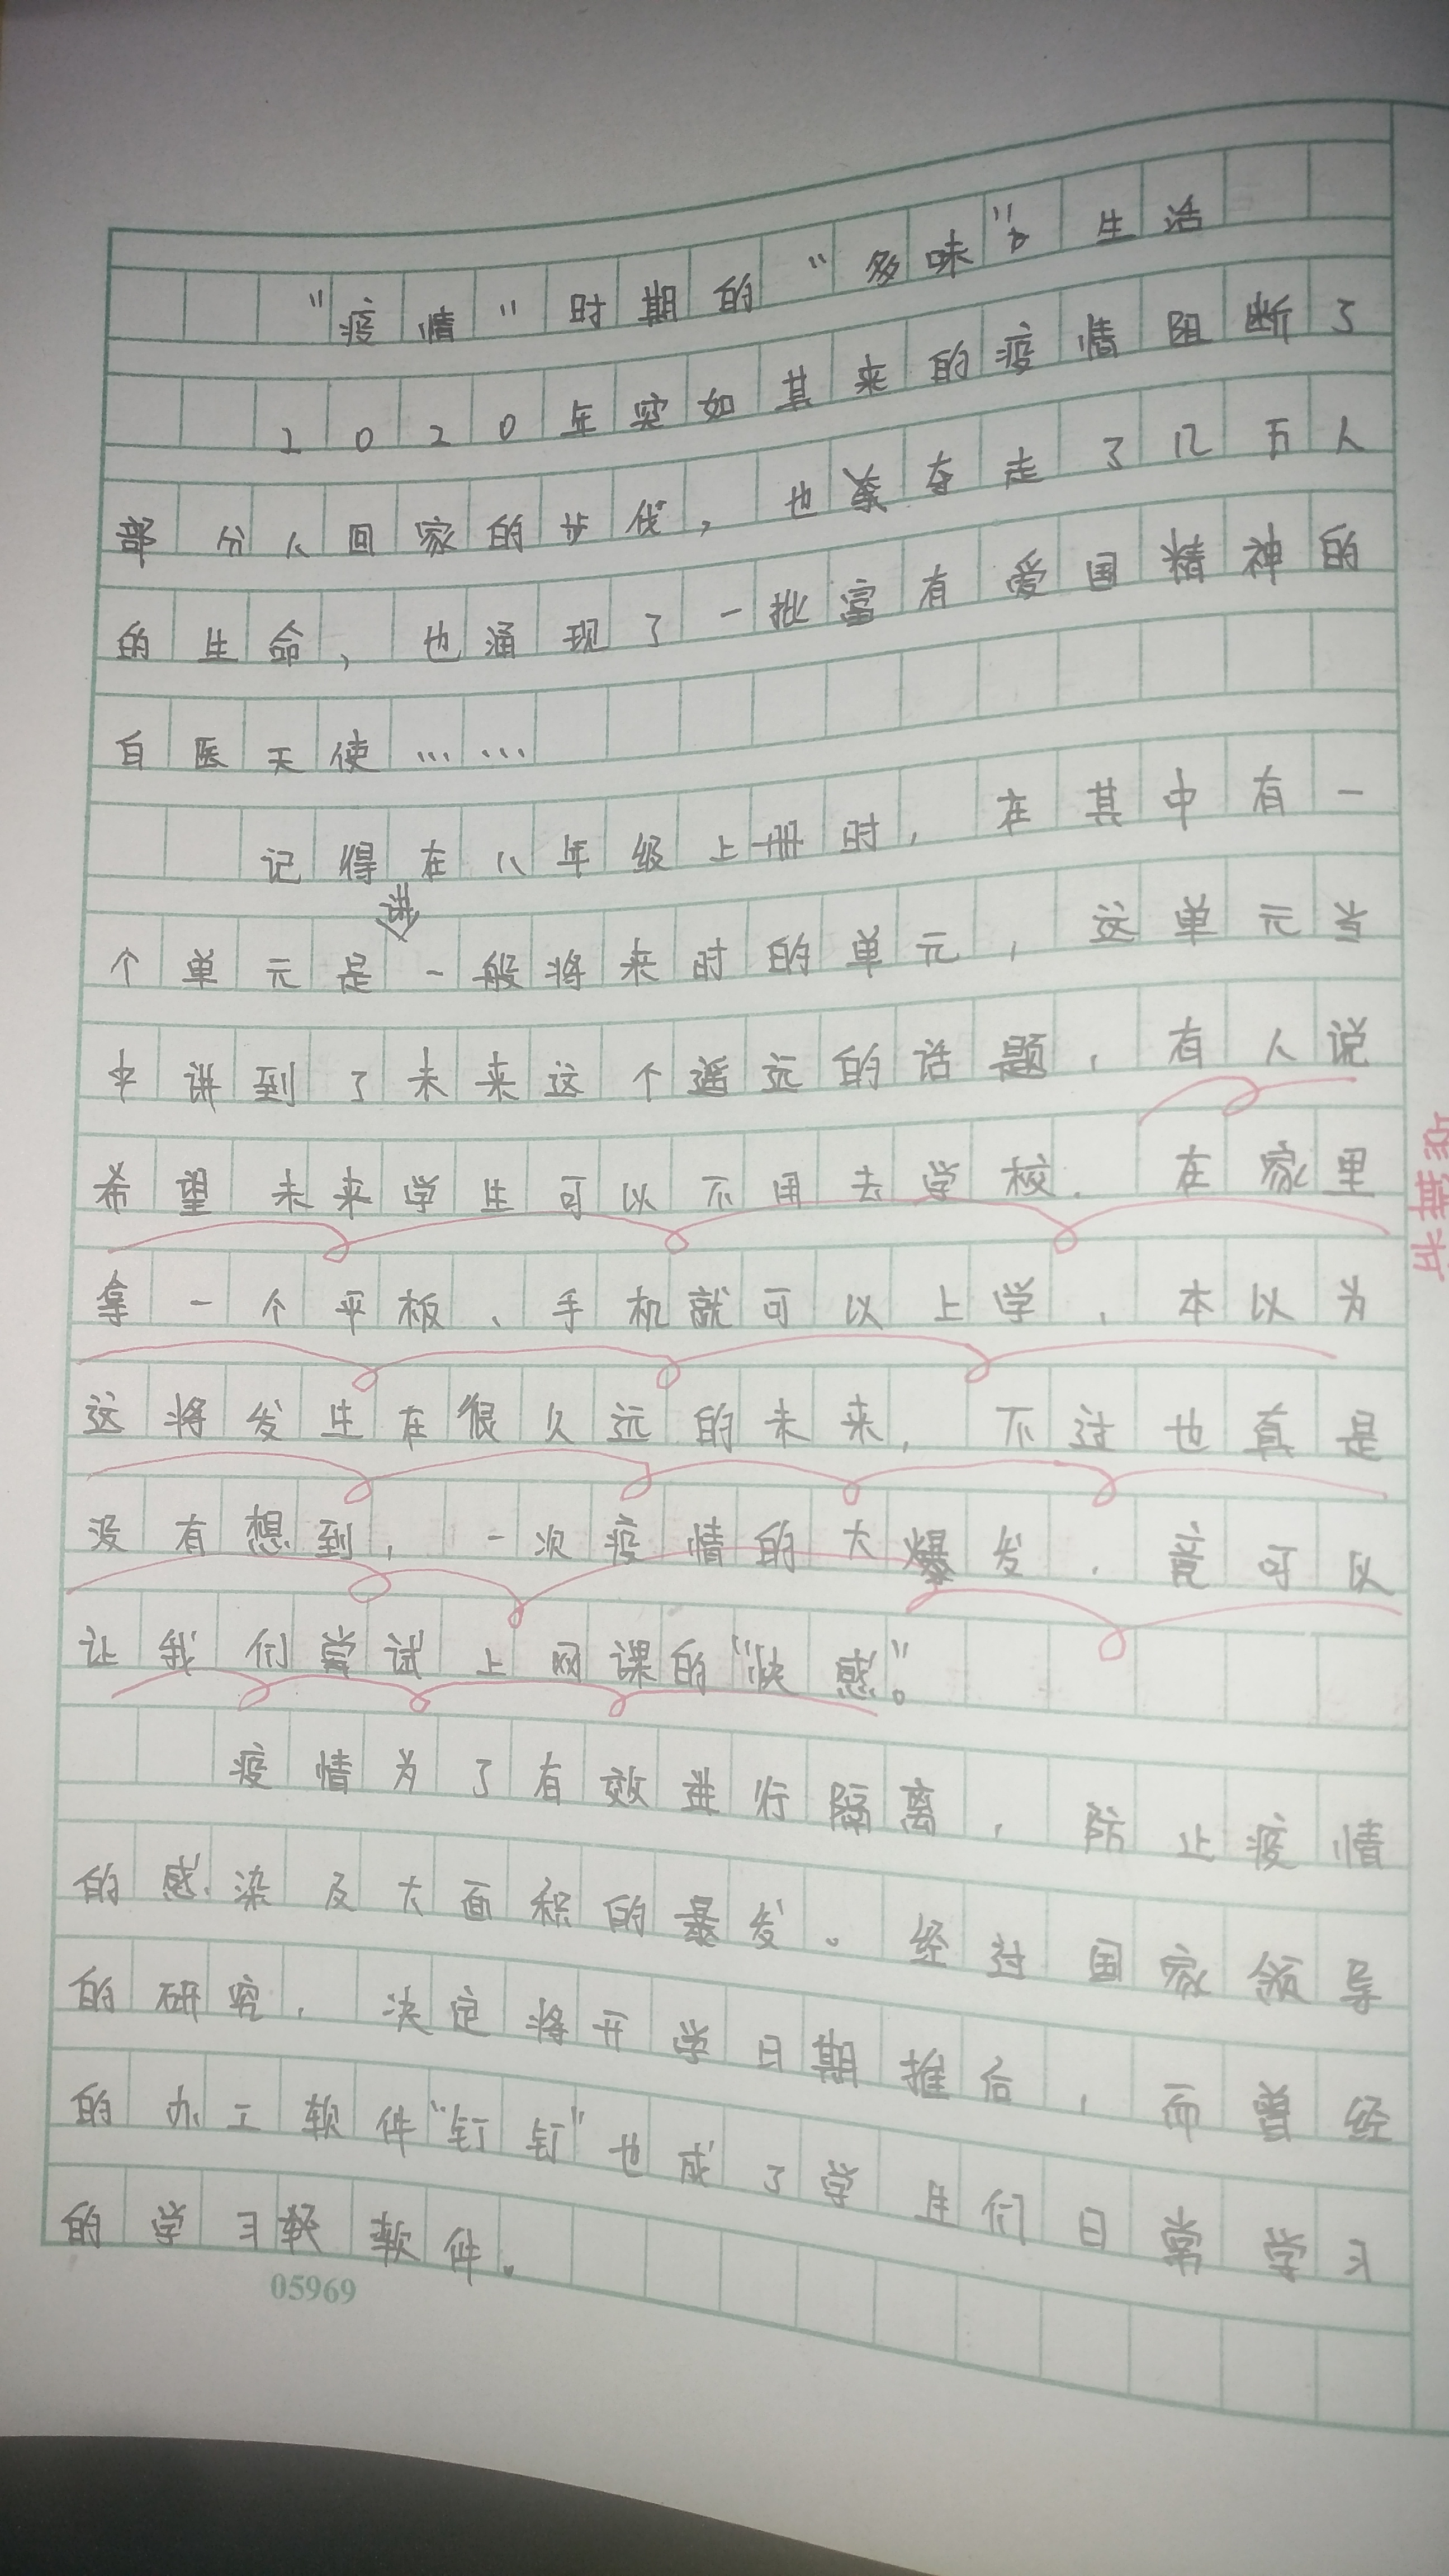 “疫情”时期的“多味”生活
2020年突如其来的疫情阻断了
部分人回家的步伐，也夺走了几万人
的生命，也涌现了一批富有爱国精神的
白医天使……
记得在八年级上册时，在其中有一
讲
个单元是一般将来时的单元，这单元当
中讲到了未来这个遥远的话题，有人说
希望未来学生可以不用去学校．在家里
拿一个平板、手机就可以上学，本以为
这将发生在很久远的未来，不过也真是
没有想到，一次疫情的大爆发．竟可以
让我们尝试上网课的“快感”。
疫情为了有效进行隔离，防止疫情
的感染及大面积的暴发。经过国家领导
的研究，决定将开学日期推后，而曾经
的办工软件“钉钉”也成了学生们日常学习
的学习软件。
05969